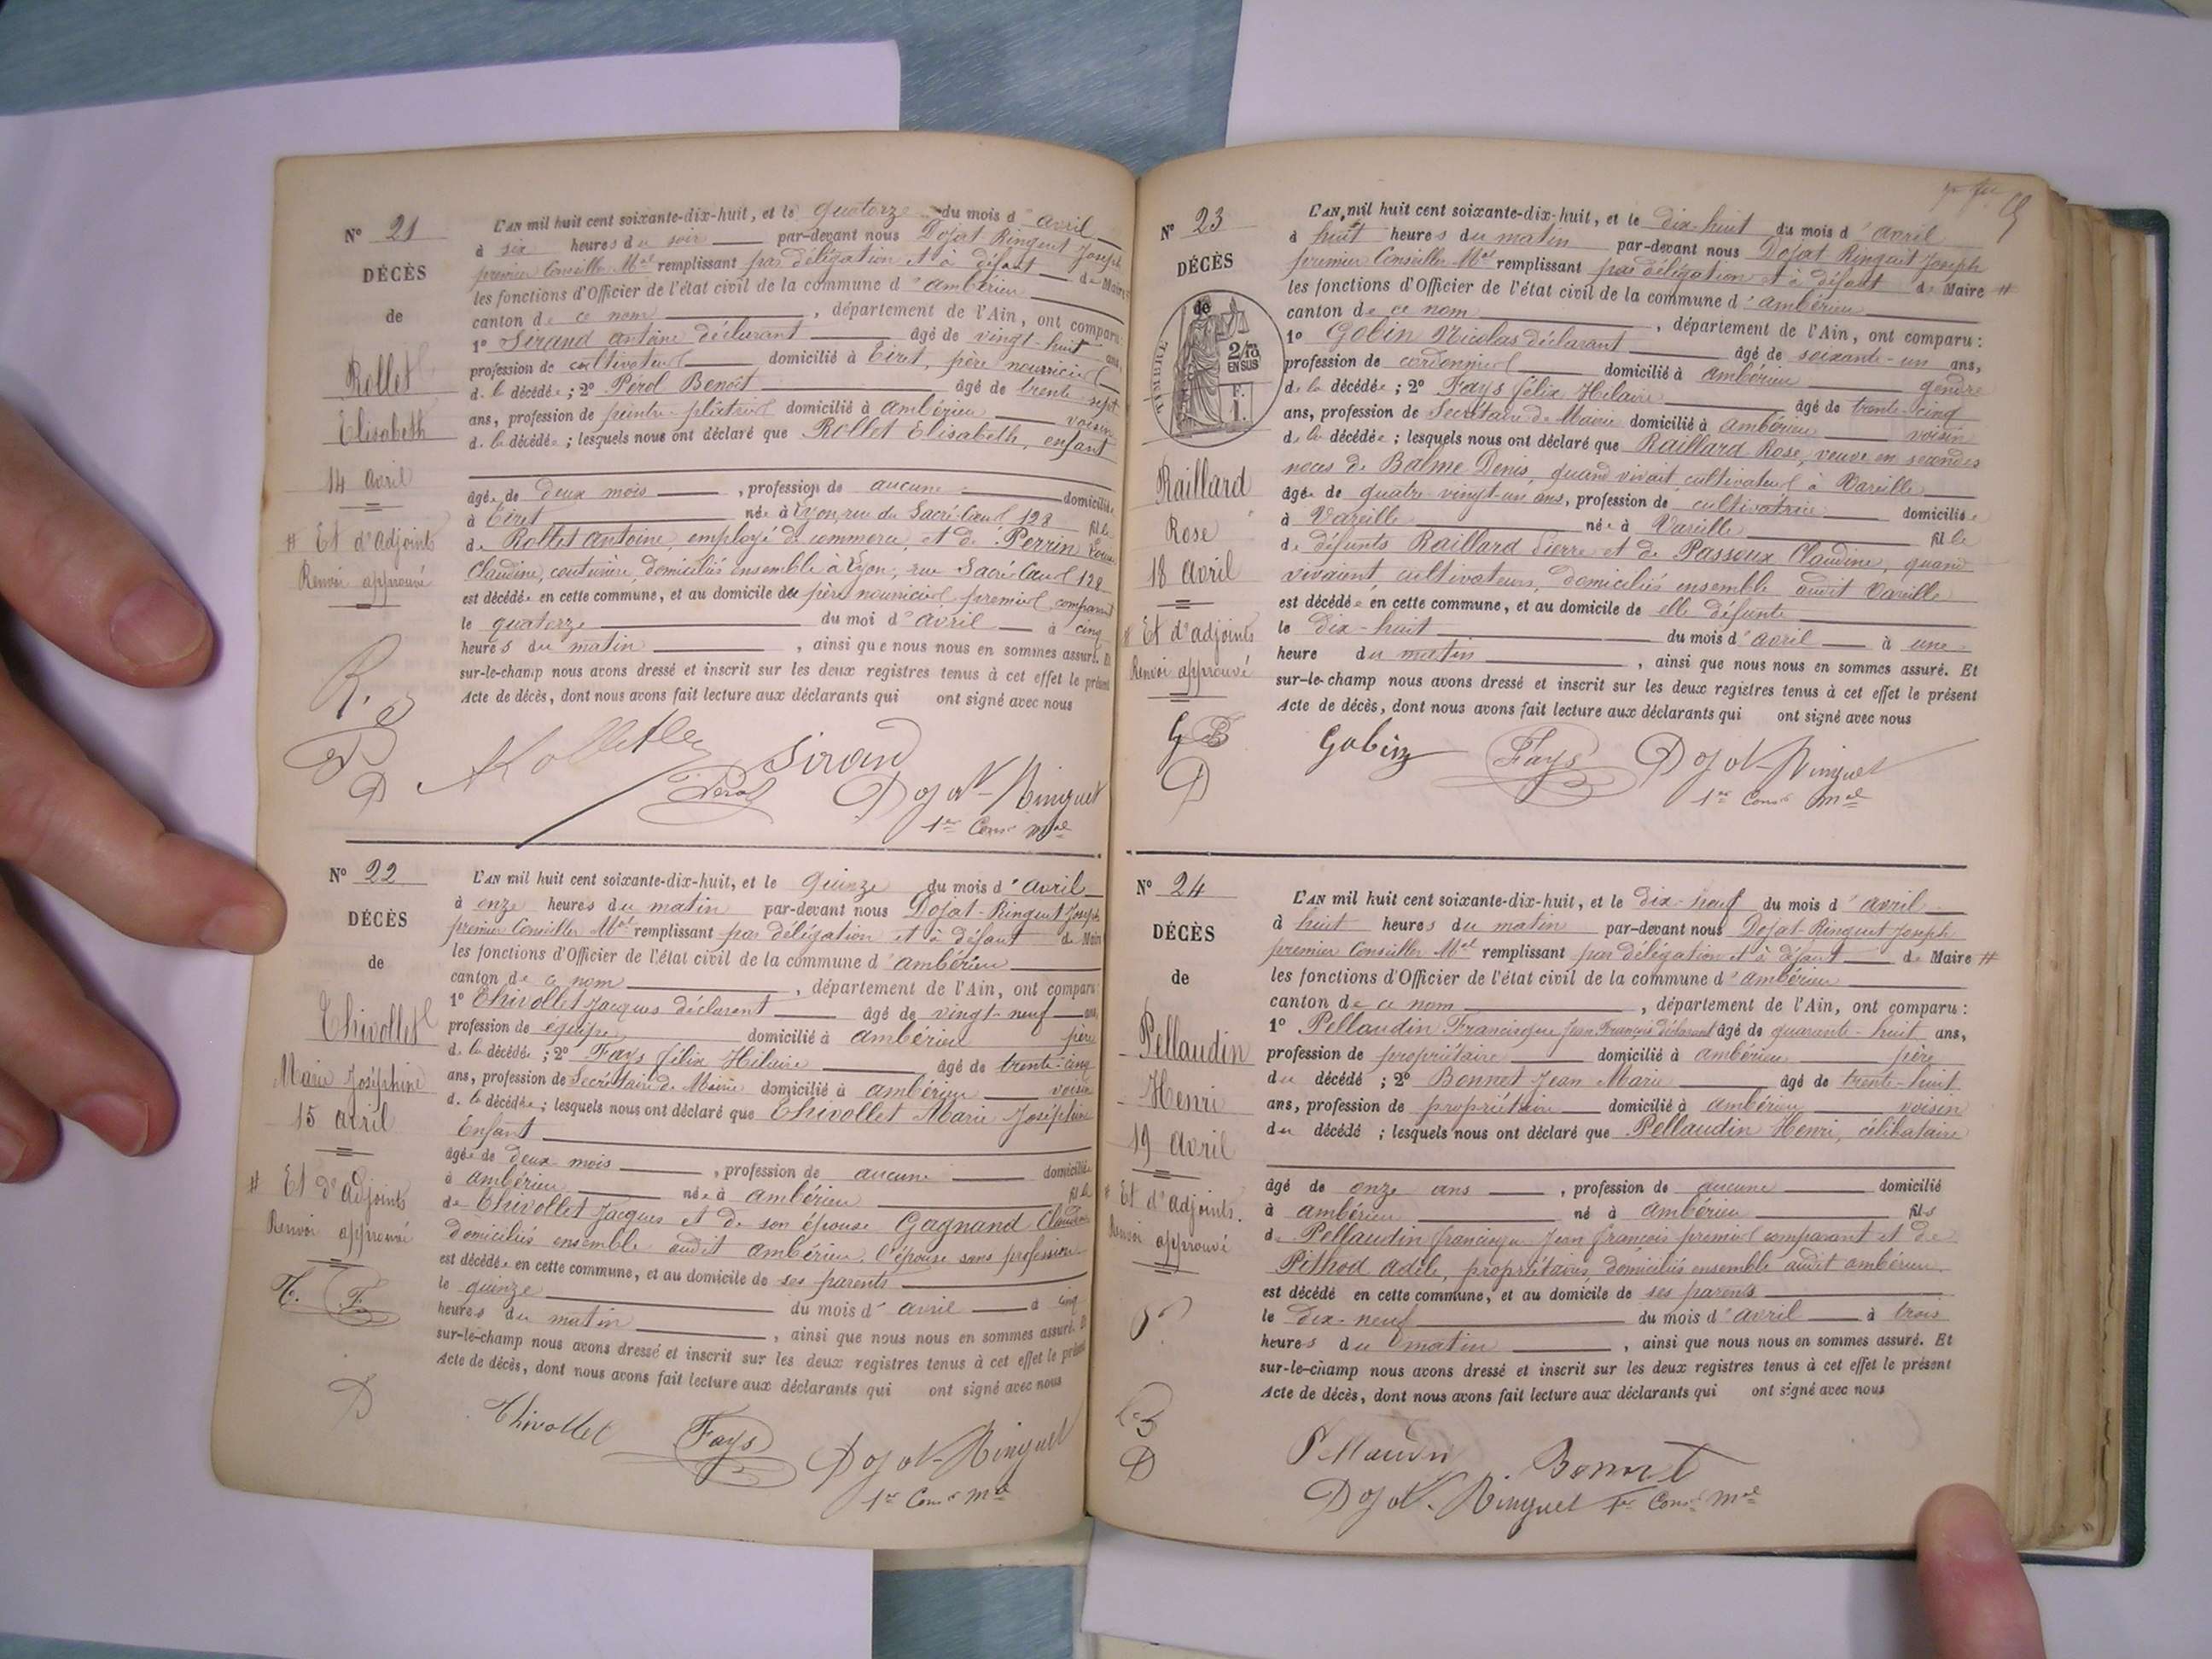 N° 21
DÉCÈS
de
Rollet
Elisabeth
14 avril
# Et d'adjoints
Renvoi approuvé
L'AN mil huit cent soixante-dix-huit, et le quatorze du mois d'avril
à six heures du soir par-devant nous Dojat-Ringuet Joseph
premier Conseiller Mal remplissant par délégation et à défaut de Maire
les fonctions d'Officier de l'état civil de la commune d'ambérieu
canton de ce nom, département de l'Ain, ont comparu:
1° Sirand antoine déclarant âgé de vingt-huit ans,
profession de cultivateur domicilié à Tiret, père nourricier
de la décédée; 2° Pérol Benoît âgé de trente sept
ans, profession de peintre-plâtrier domicilié à ambérieu voisin
de la décédée; lesquels nous ont déclaré que Rollet Elisabeth, enfant
âgée de deux mois, profession de aucune domiciliée
à Tiret née à Lyon, rue du Sacré-Cœur 128 fille
de Rollet antoine, employé de commerce, et de Perrin Louise
Claudine, couturière, domiciliés ensemble à Lyon, rue Sacré Cœur 128
est décédée en cette commune, et au domicile du père nourricier premier comparant
le quatorze du moi d'avril à cinq
heures du matin, ainsi que nous nous en sommes assuré. Et
sur-le-champ nous avons dressé et inscrit sur les deux registres tenus à cet effet le présent
Acte de décès, dont nous avons fait lecture aux déclarants qui ont signé avec nous
Sirand
Pérol
Dojat-Ringuet
1er Cons. mal
N° 22
DÉCÈS
de
Thivollet
Marie Joséphine
15 avril
# Et d'adjoints
Renvoi approuvé
T. F.
D
L'AN mil huit cent soixante-dix-huit, et le quinze du mois d'avril
à onze heures du matin par-devant nous Dojat-Ringuet Joseph
premier Conseiller Mal remplissant par délégation et à défaut de Maire
les fonctions d'Officier de l'état civil de la commune d'ambérieu
canton de ce nom, département de l'Ain, ont comparu
1° Thivollet Jacques déclarant âgé de vingt-neuf ans,
profession de domicilié à ambérieu père
de la décédée; 2° Fays félix Hilaire âgé de trente-cinq
ans, profession de Secrétaire de Mairie domicilié à ambérieu voisin
de la décédée; lesquels nous ont déclaré que Thivollet Marie Joséphine
Enfant
âgée de deux mois, profession de aucune domiciliée
à ambérieu née à ambérieu fille
de Thivollet Jacques et de son épouse Gagnand Claudine
domiciliés ensemble audit ambérieu. l'épouse sans profession
est décédée en cette commune, et au domicile de ses parents
le quinze du mois d'avril à cinq
heures du matin, ainsi que nous nous en sommes assuré. Et
sur-le-champ nous avons dressé et inscrit sur les deux registres tenus à cet effet le présent
Acte de décès, dont nous avons fait lecture aux déclarants qui ont signé avec nous
Thivollet Fays Dojat-Ringuet
1er Cons. mal
N° 23
DÉCÈS
de
TIMBRE
2/10
EN SUS
F.
1.
Raillard
Rose
18 avril
# Et d'adjoints
Renvoi approuvé
D
L'AN, mil huit cent soixante-dix-huit, et le dix-huit du mois d'avril
à huit heures du matin par-devant nous Dojat Ringuet Joseph
premier Conseiller Mal remplissant par délégation et à défaut de Maire #
les fonctions d'Officier de l'état civil de la commune d'ambérieu
canton de ce nom, département de l'Ain, ont comparu:
1° Gobin Nicolas déclarant âgé de soixante-un ans,
profession de cordonnier domicilié à ambérieu gendre
de la décédée; 2° Fays félix Hilaire âgé de trente-cinq
ans, profession de Secrétaire de Mairie domicilié à ambérieu voisin
de la décédée; lesquels nous ont déclaré que Raillard Rose, veuve en secondes
noces de Balme Denis, quand vivait cultivateur à Vareille
âgée de quatre vingt-un ans, profession de cultivatrice domiciliée
à Vareille née à Vareille fille
de défunts Raillard Pierre et de Passoux Claudine, quand
vivaient, cultivateurs, domiciliés ensemble audit Vareille
est décédée en cette commune, et au domicile de elle défunte
le dix-huit du mois d'avril à une
heure du matin, ainsi que nous nous en sommes assuré. Et
sur-le-champ nous avons dressé et inscrit sur les deux registres tenus à cet effet le présent
Acte de décès, dont nous avons fait lecture aux déclarants qui ont signé avec nous
Gobin Fays Dojat-Ringuet
1er Cons. mal
N° 24
DÉCÈS
de
Pellaudin
Henri
19 avril
# Et d'adjoints.
Renvoi approuvé
D
L'AN mil huit cent soixante-dix-huit, et le dix-neuf du mois d'avril
à huit heures du matin par-devant nous Dojat-Ringuet Joseph
premier Conseiller Mal remplissant par délégation et à défaut de Maire #
les fonctions d'Officier de l'état civil de la commune d'ambérieu
canton de ce nom, département de l'Ain, ont comparu:
1° Pellaudin Francisque Jean François déclarant âgé de quarante-huit ans,
profession de propriétaire domicilié à ambérieu père
du décédé; 2° Bonnet Jean Marie âgé de trente-huit
ans, profession de propriétaire domicilié à ambérieu voisin
du décédé; lesquels nous ont déclaré que Pellaudin Henri, célibataire
âgé de onze ans, profession de aucune domicilié
à ambérieu né à ambérieu fils
de Pellaudin francisque Jean françois premier comparant et de
Pithod adèle, propriétaires, domiciliés ensemble audit ambérieu.
est décédé en cette commune, et au domicile de ses parents
le dix-neuf du mois d'avril à trois
heures du matin, ainsi que nous nous en sommes assuré. Et
sur-le-champ nous avons dressé et inscrit sur les deux registres tenus à cet effet le présent
Acte de décès, dont nous avons fait lecture aux déclarants qui ont signé avec nous
Pellaudin Bonnet
Dojat-Ringuet 1er Cons. mal